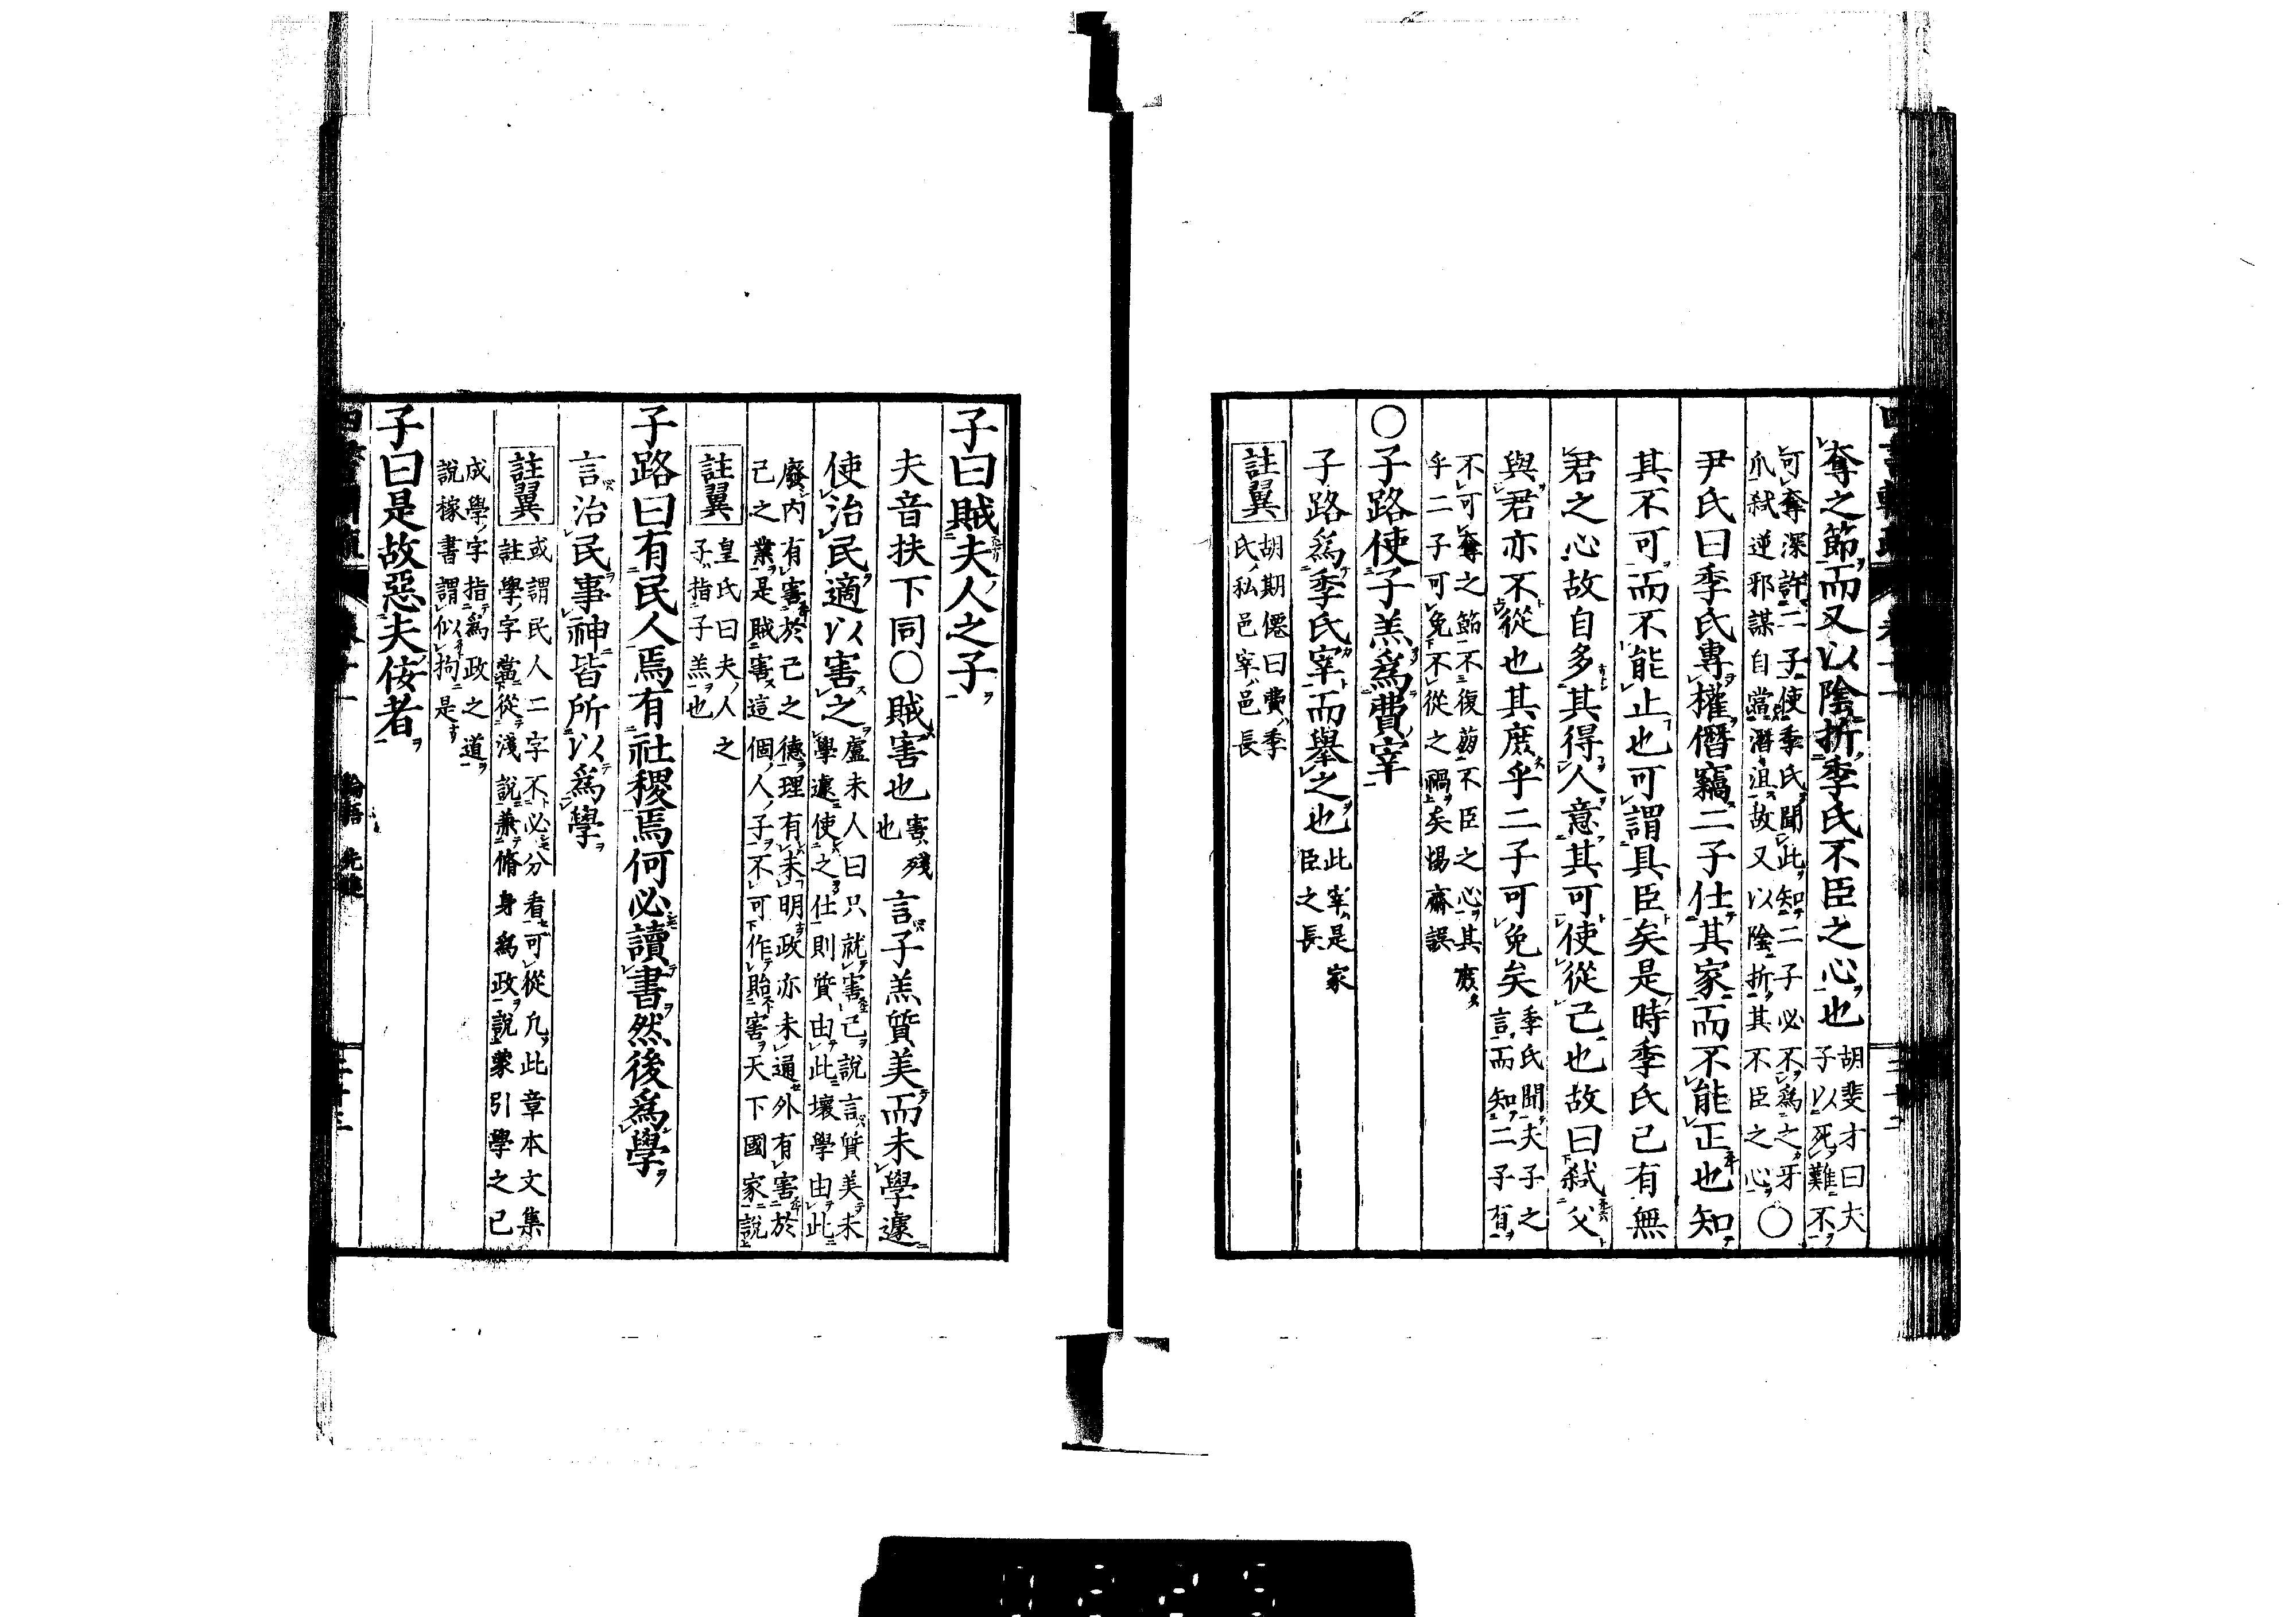 奪之節而又以陰折季氏不臣之心也胡斐才曰夫
子以死難不
可奪深許二子使季氏聞此知二子必不爲之牙
爪弒逆邪謀自當潛沮故又以陰折其不臣之心〇
尹氏曰季氏專權僭竊二子仕其家而不能正也知
其不可而不能止也可謂具臣矣是時季氏已有無
君之心故自多其得人意其可使從己也故曰弒父
與君亦不從也其庶乎二子可免矣季氏聞夫子之
言而知二子有
不可奪之節不復萌不臣之心其庶
乎二子可免不從之禍矣惕齋誤
〇子路使子羔爲費宰
子路爲季氏宰而擧之也此宰是家
臣之長
註翼胡期僊曰費季
氏私邑宰邑長
子曰賊夫人之子
夫音扶下同〇賊害也害殘
也言子羔質美而未學遽
使治民適以害之盧未人曰只就害己說言質美未
學遽使之仕則質由此壞學由此
廢內有害於己之德理有未明政亦未通外有害於
己之業是賊害這個人子不可作貽害天下國家說
註翼皇氏曰夫人之
子指子羔也
子路曰有民人焉有社稷焉何必讀書然後爲學
言治民事神皆所以爲學
註翼或謂民人二字不必分看可從凡此章本文集
註學字當從淺說兼脩身爲政說蒙引學之已
成學字指爲政之道
說稼書謂似拘是
子曰是故惡夫佞者
論語 先進